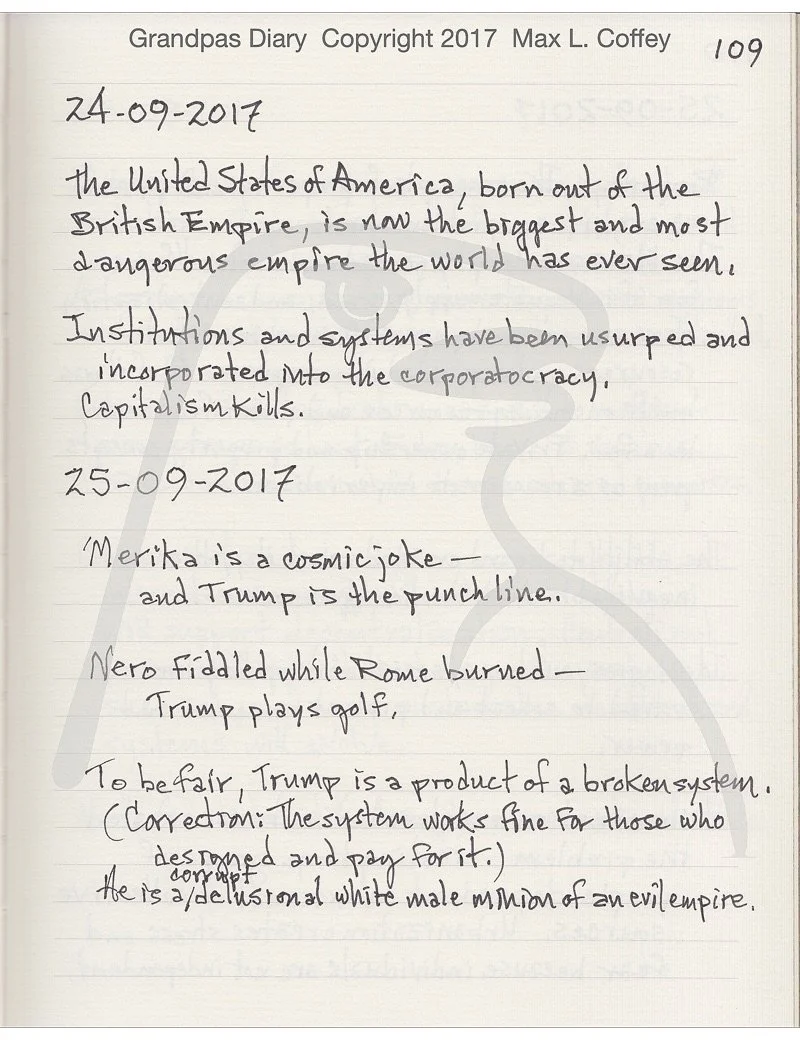 Grandpas Diary Copyright 2017 Max L. Coffey
109
24-09-2017
The United States of America, born out of the
British Empire, is now the biggest and most
dangerous empire the world has ever seen.
Institutions and systems have been usurped and
incorporated into the corporatocracy.
Capitalism Kills.
25-09-2017
'Merika is a cosmic joke —
and Trump is the punch line.
Nero fiddled while Rome burned —
Trump plays golf.
To be fair, Trump is a product of a broken system.
(Correction: The system works fine for those who
designed and pay for it.)
corrupt
He is a/delusional white male minion of an evil empire.